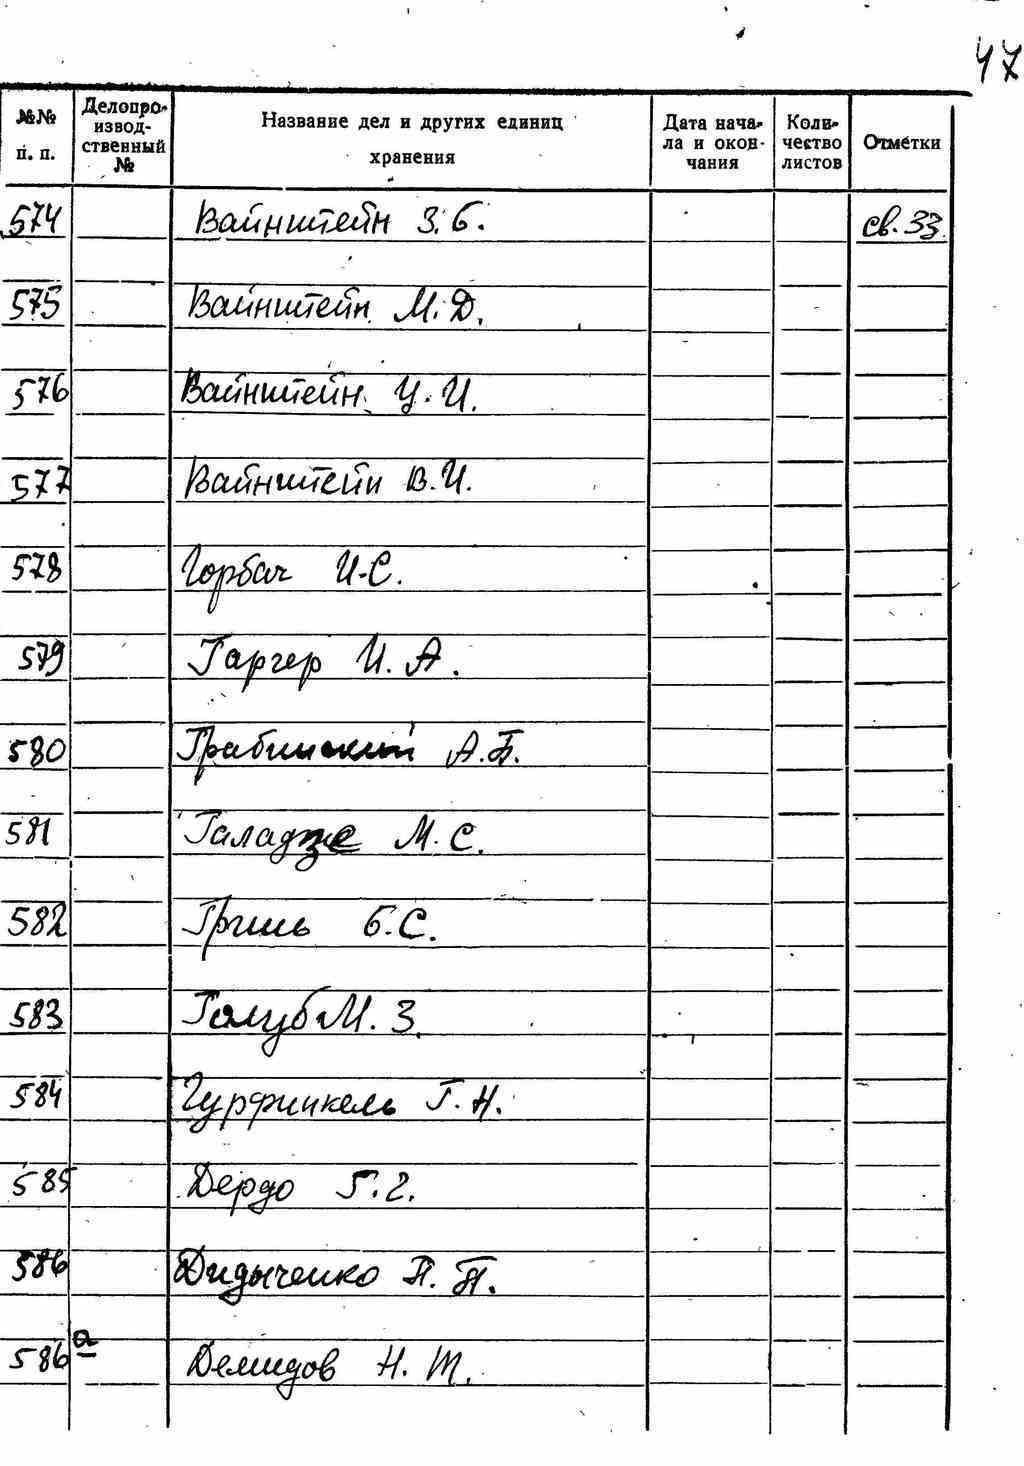 47
№№ п. п. Делопроизводственный № Название дел и других единиц хранения Дата начала и окончания Количество листов Отметки
574 Вайнштейн З. Б. св. 33
575 Вайнштейн М. Д.
576 Вайнштейн Ц. И.
577 Вайнштейн В. И.
578 Горбач И. С.
579 Гаргер И. А.
580 Грабинский А. Б.
581 Галадже М. С.
582 Гришь Б. С.
583 Голуб М. З.
584 Гурфинкель Г. Н.
585 Дердо Г. Г.
586 Дидыченко П. П.
586а Демидов Н. Т.